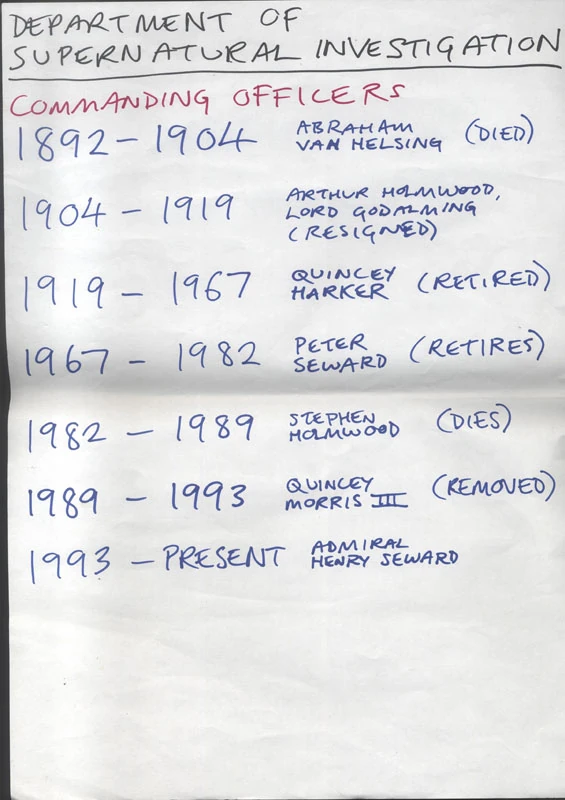 DEPARTMENT OF
SUPERNATURAL INVESTIGATION
COMMANDING OFFICERS
1892 – 1904 ABRAHAM
VAN HELSING (DIED)
1904 – 1919 ARTHUR HOLMWOOD,
LORD GODALMING
(RESIGNED)
1919 – 1967 QUINCEY
HARKER (RETIRED)
1967 – 1982 PETER
SEWARD (RETIRES)
1982 – 1989 STEPHEN
HOLMWOOD (DIES)
1989 – 1993 QUINCEY
MORRIS III (REMOVED)
1993 – PRESENT ADMIRAL
HENRY SEWARD